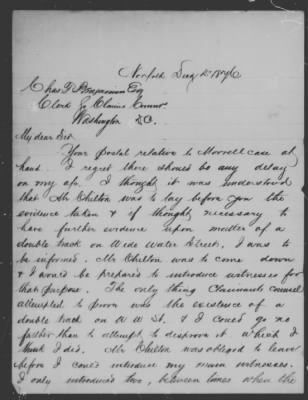 Norfolk Dec 12 1876
Chas F Benjamin Esq
Clerk So Claims Commr.
Washington D.C.
My dear Sir:
Your postal relative to Morrell case at
hand. I regret there should be any delay
on my a/c. I thought it was understood
that Mr Chilton was to lay before you the
evidence taken & if thought necessary to
have further evidence upon matter of a
double track on Wide Water Street, I was to
be informed. Mr Chilton was to come down
& I would be prepared to introduce witnesses for
that purpose. The only thing Claimants Counsel
attempted to prove was the existence of a
double track on W W St. & I could go no
farther than to attempt to disprove it which I
think I did. Mr Chilton was obliged to leave
before I could introduce my main witnesses.
I only introduced two, between times when the